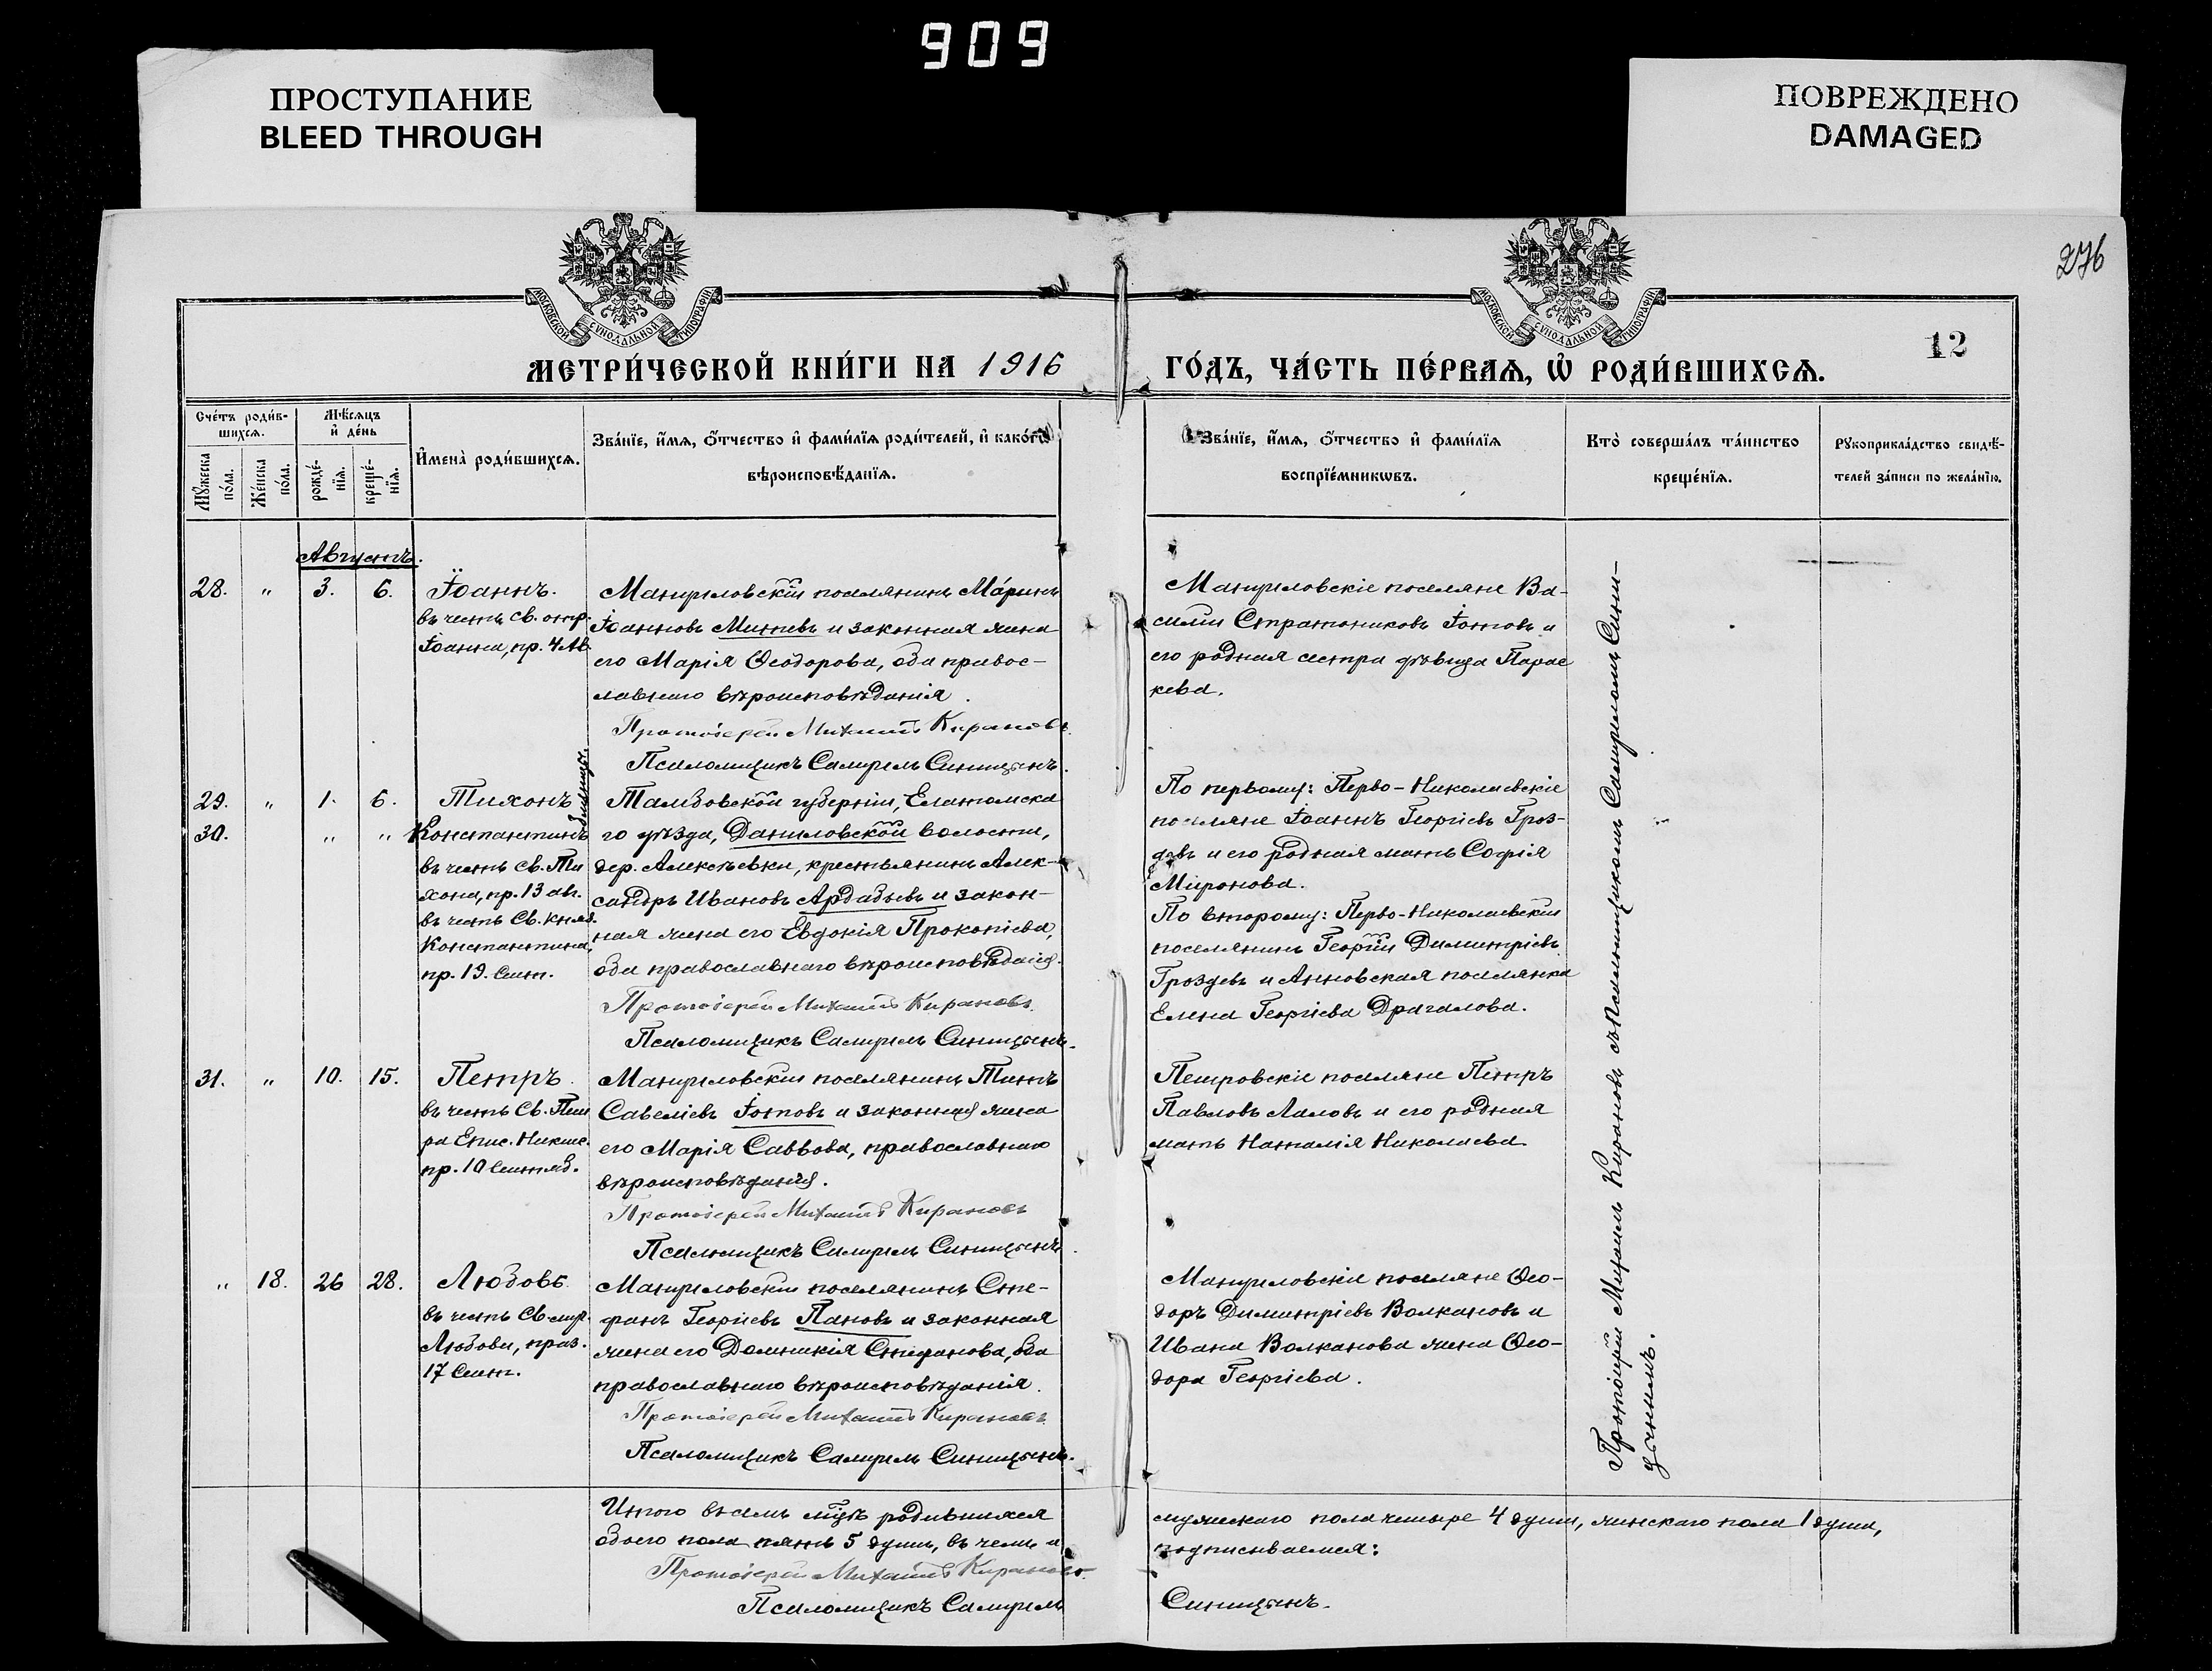 909
ПРОСТУПАНИЕ
BLEED THROUGH
ПОВРЕЖДЕНО
DAMAGED
276
МОСКОВСКОЙ СУНОДАЛЬНОЙ ТИПОГРАФІИ
МОСКОВСКОЙ СУНОДАЛЬНОЙ ТИПОГРАФІИ
12
МЕТРИ́ЧЕСКОЙ КНИ́ГИ НА 1916
ГО́ДЪ, ЧА́СТЬ ПЕ́РВАѦ, Ѡ҆ РОДИ́ВШИХСѦ.
Сче́тъ роди́в-
шихсѧ.
Мѣ́сяцъ
и҆ де́нь
Мꙋ́жеска
по́ла.
Же́нска
по́ла.
рожде́-
нїѧ.
креще́-
нїѧ.
И҆мена̀ роди́вшихсѧ.
Зва́нїе, и҆́мѧ, ѻ҆́тчество и҆ фами́лїѧ роди́телей, и҆ како́гѡ
вѣроисповѣ́данїѧ.
Зва́нїе, и҆́мѧ, ѻ҆́тчество и҆ фами́лїѧ
воспрїе́мникѡвъ.
Кто̀ соверша́лъ та́инство
креще́нїѧ.
Рꙋкоприкла́дство свидѣ́-
телей за́писи по жела́нїю.
Августъ.
28. " 3. 6. Іоаннъ.
въ честь св. отр.
Іоанна, пр. 4 Ав.
Мануиловскій поселянинъ Маринъ
Іоанновъ Митевъ и законная жена
его Марія Ѳеодорова, оба правос-
лавнаго вѣроисповѣданія.
Протоіерей Михаилъ Кирановъ
Псаломщикъ Самуилъ Синицынъ.
Мануиловскіе поселяне Ва-
силій Стратониковъ Іотовъ и
его родная сестра дѣвица Парас
кева.
29. " 1. 6. Тихонъ
30. " " Константинъ
близнецы.
въ честь св. Ти
хона, пр. 13 ав.
въ честь Св. княз.
Константина,
пр. 19. Сент.
Тамбовской губерніи, Елатомска
го уѣзда, Даниловской волости,
дер. Алексѣевки, крестьянинъ Алек-
сандръ Ивановъ Ардабьевъ и закон-
ная жена его Евдокія Прокопіева,
оба православнаго вѣроисповѣданія.
Протоіерей Михаилъ Кирановъ.
Псаломщикъ Самуилъ Синицынъ.
По первому: Перво-Николаевскіе
поселяне Іоаннъ Георгіевъ Гроз-
девъ и его родная мать Софія
Миронова.
По второму: Перво-Николаевскій
поселянинъ Георгій Димитріевъ
Гроздевъ и Анновская поселянка
Елена Георгіева Драгалова.
31. " 10. 15. Петръ.
въ честь Св. Пет
ра Епис. Никис.
пр. 10 Сентяб.
Мануиловскій поселянинъ Титъ
Савеліевъ Іотовъ и законная жена
его Марія Саввова, православнаго
вѣроисповѣданія.
Протоіерей Михаилъ Кирановъ
Псаломщикъ Самуилъ Синицынъ.
Петровскіе поселяне Петръ
Павловъ Лаловъ и его родная
мать Наталія Николаева
" 18. 26 28. Любовь.
въ честь Св. муч.
Любови, праз.
17 Сент.
Мануиловскій поселянинъ Сте-
фанъ Георгіевъ Пановъ и законная
жена его Домникія Стефанова, оба
православнаго вѣроисповѣданія.
Протоіерей Михаилъ Кирановъ
Псаломщикъ Самуилъ Синицынъ.
Мануиловскіе поселяне Ѳео-
доръ Димитріевъ Волкановъ и
Ивана Волканова жена Ѳео-
дора Георгіева.
Протоіерей Михаилъ Кирановъ съ Псаломщикомъ Самуиломъ Сини-
цынымъ.
Итого въ семъ м-цѣ родившихся
обоего пола пять 5 душъ, въ чемъ и
Протоіерей Михаилъ Кирановъ.
Псаломщикъ Самуилъ
мужескаго пола четыре 4 души, женскаго пола 1 душа,
подписываемся:
Синицынъ.